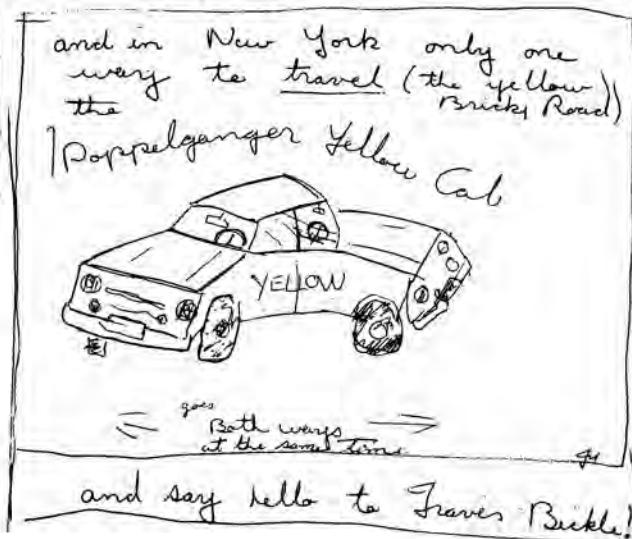 and in New York only one
way to travel (the yellow
the Brick Road)
Doppelganger Yellow Cab
YELLOW
goes
Both ways
at the same time
and say hello to Travis Bickle!